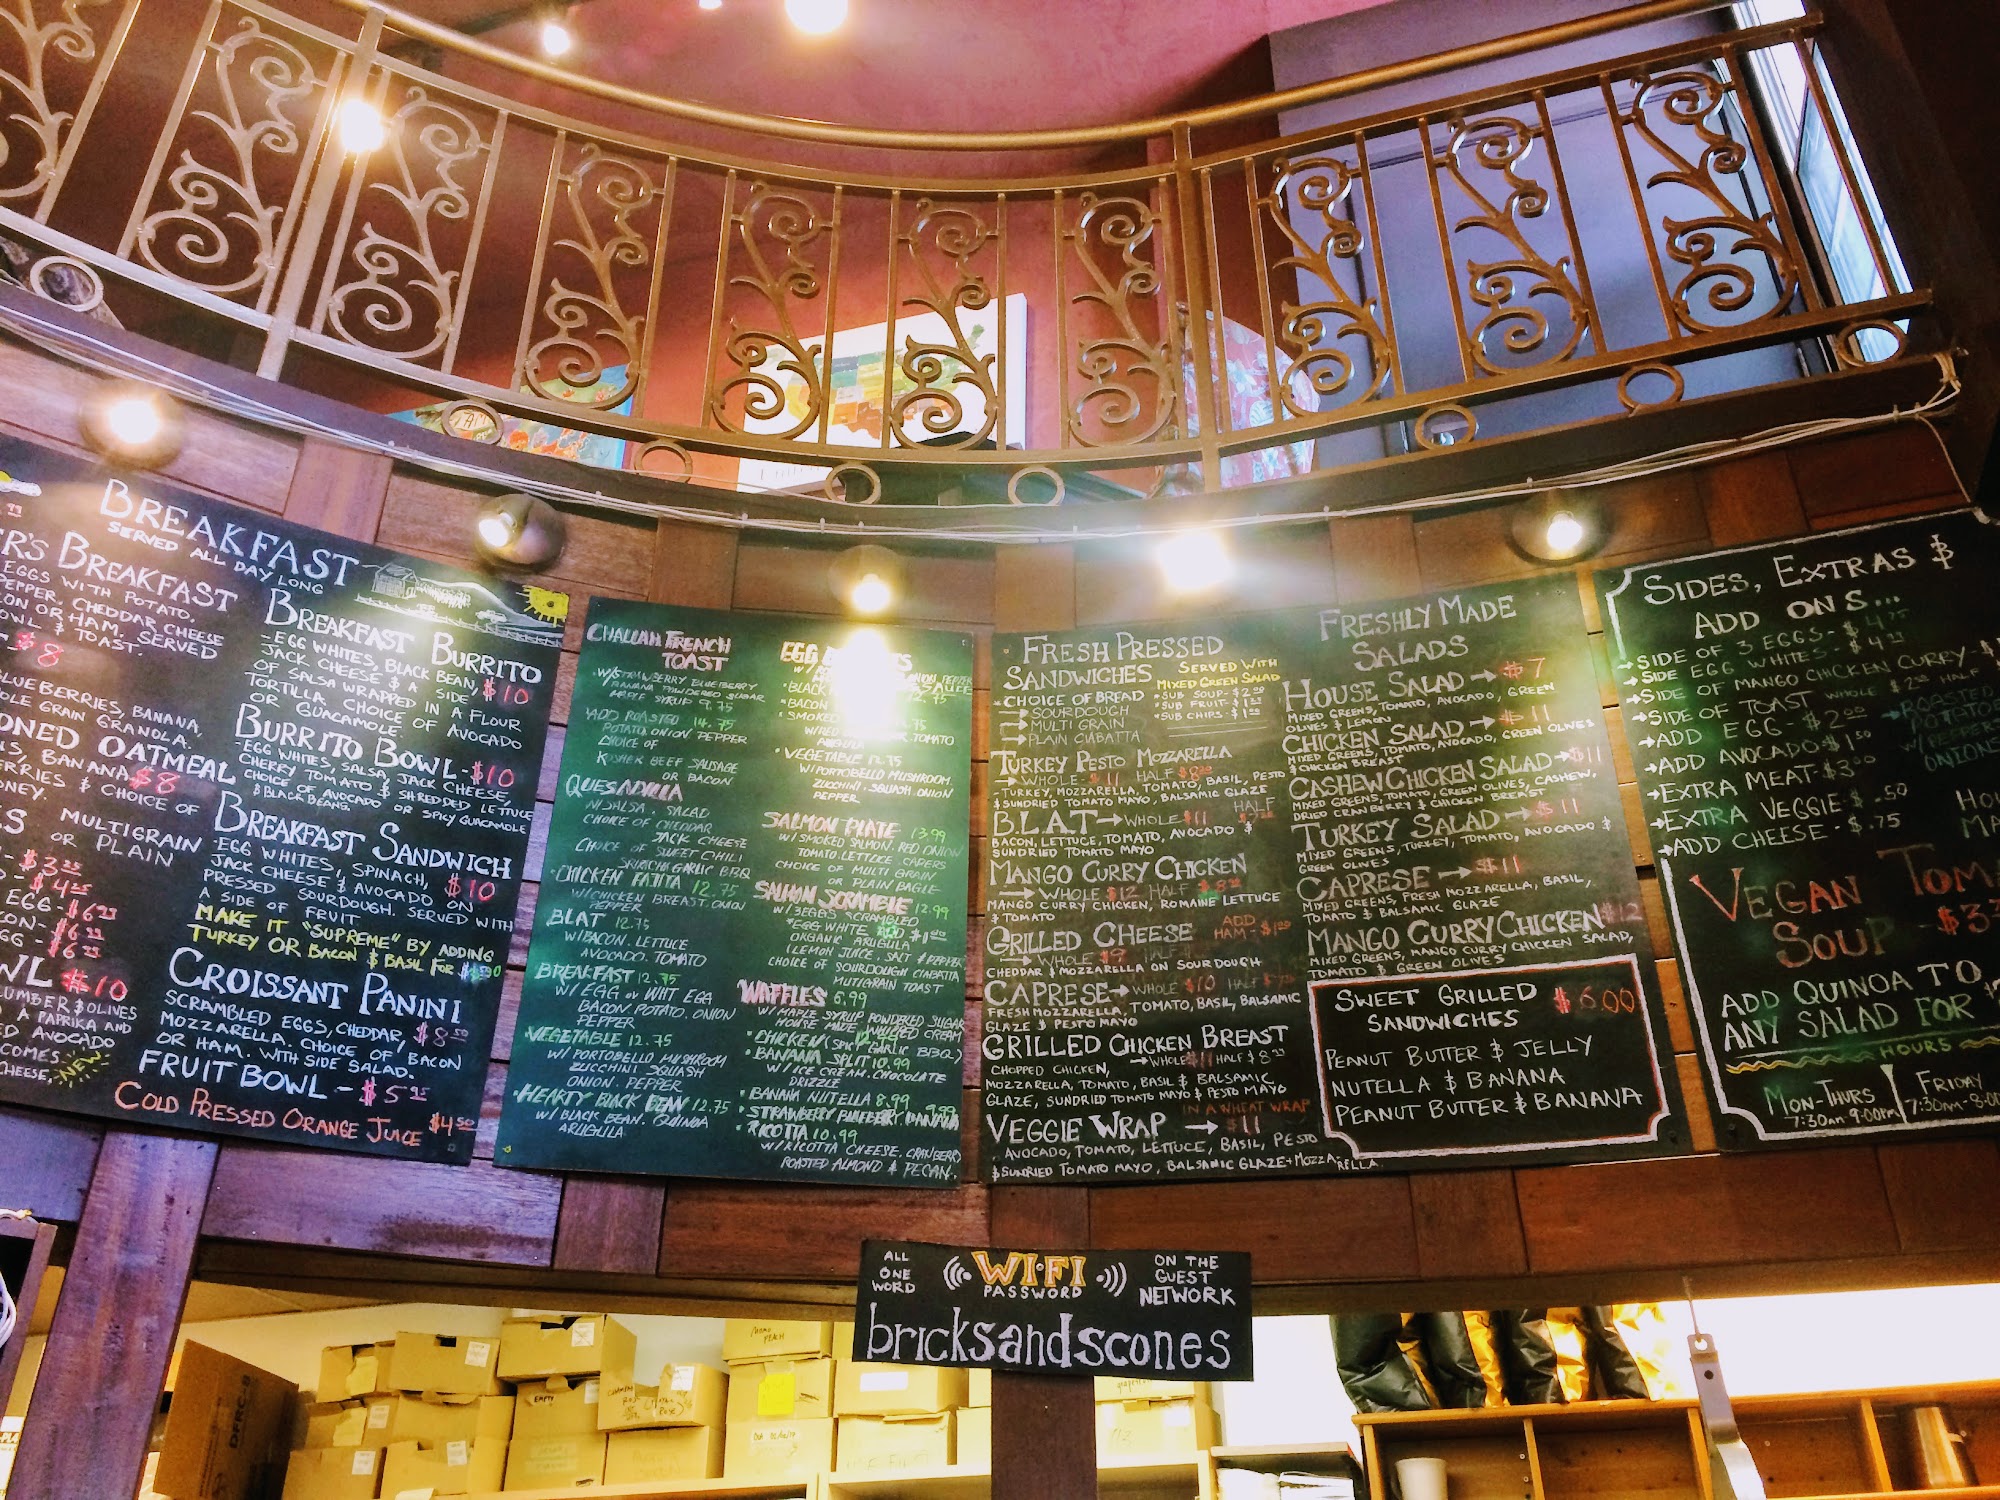 BREAKFAST
SERVED ALL DAY LONG
BREAKFAST
EGGS WITH POTATO,
PEPPER, CHEDDAR CHEESE
OR HAM. SERVED
& TOAST.
$8
BLUEBERRIES, BANANA,
GRAIN GRANOLA.
OATMEAL
BANANA $8
& CHOICE OF
MULTIGRAIN
OR PLAIN
EGG - $6
$10
& OLIVES
A PAPRIKA AND
AVOCADO
COMES
CHEESE, NEW
BREAKFAST BURRITO
-EGG WHITES, BLACK BEAN, $10
JACK CHEESE & A SIDE
OF SALSA WRAPPED IN A FLOUR
TORTILLA. CHOICE OF AVOCADO
OR GUACAMOLE.
BURRITO BOWL - $10
-EGG WHITES, SALSA, JACK CHEESE,
CHERRY TOMATO & SHREDDED LETTUCE
CHOICE OF AVOCADO OR SPICY GUACAMOLE
& BLACK BEANS
BREAKFAST SANDWICH
-EGG WHITES, SPINACH, $10
JACK CHEESE & AVOCADO ON
PRESSED SOURDOUGH. SERVED WITH
A SIDE OF FRUIT
MAKE IT "SUPREME" BY ADDING
TURKEY OR BACON & BASIL FOR
CROISSANT PANINI
SCRAMBLED EGGS, CHEDDAR, $8.50
MOZZARELLA. CHOICE OF BACON
OR HAM. WITH SIDE SALAD.
FRUIT BOWL - $5.95
COLD PRESSED ORANGE JUICE $4.50
CHALLAH FRENCH
TOAST
W/STRAWBERRY BLUEBERRY
BANANA POWDERED SUGAR
MAPLE SYRUP 9.75
ADD ROASTED 14.75
POTATO, ONION PEPPER
CHOICE OF
KOSHER BEEF SAUSAGE
OR BACON
QUESADILLA
W/SALSA, SALAD
CHOICE OF CHEDDAR
JACK CHEESE
CHOICE OF SWEET CHILI
SRIRACHA GARLIC BBQ
CHICKEN FAJITA 12.75
W/CHICKEN BREAST. ONION
PEPPER
BLAT 12.75
W/BACON. LETTUCE
AVOCADO. TOMATO
BREAKFAST 12.75
W/ EGG OR WHIT EGG
BACON. POTATO. ONION
PEPPER
VEGETABLE 12.75
W/ PORTOBELLO MUSHROOM
ZUCCHINI SQUASH
ONION. PEPPER
HEARTY BLACK BEAN 12.75
W/ BLACK BEAN. QUINOA
ARUGULA
EGG
BLACK
BACON
SMOKED
TOMATO
VEGETABLE 12.75
W/PORTOBELLO MUSHROOM
ZUCCHINI. SQUASH. ONION
PEPPER
SALMON PLATE 13.99
W/SMOKED SALMON. RED ONION
TOMATO. LETTUCE. CAPERS
CHOICE OF MULTI GRAIN
OR PLAIN BAGLE
SALMON SCRAMBLE 12.99
W/3EGGS SCRAMBLED
*EGG WHITE ADD $1.00
ORGANIC ARUGULA
LEMON JUICE, SALT & PEPPER
CHOICE OF SOURDOUGH CIABATTA
MUTIGRAIN TOAST
WAFFLES 6.99
W/ MAPLE SYRUP POWDERED SUGAR
HOUSE MADE WHIPPED CREAM
• CHICKEN (SPICY GARLIC BBQ)
• BANANA SPLIT 10.99
W/ ICE CREAM. CHOCOLATE
DRIZZLE
• BANANA NUTELLA 8.99
• STRAWBERRY BLUEBERRY BANANA 9.99
• RICOTTA 10.99
W/RICOTTA CHEESE, CRANBERRY
ROASTED ALMOND & PECAN.
FRESH PRESSED
SANDWICHES
SERVED WITH
MIXED GREEN SALAD
• CHOICE OF BREAD
→ SOURDOUGH
→ MULTI GRAIN
→ PLAIN CIABATTA
• SUB SOUP - $2.00
• SUB FRUIT - $1.50
• SUB CHIPS - $1.50
TURKEY PESTO MOZZARELLA
→ WHOLE - $11 HALF $8
- TURKEY, MOZZARELLA, TOMATO, BASIL, PESTO
& SUNDRIED TOMATO MAYO, BALSAMIC GLAZE
B.L.A.T → WHOLE $11 HALF
BACON, LETTUCE, TOMATO, AVOCADO &
SUNDRIED TOMATO MAYO
MANGO CURRY CHICKEN
→ WHOLE $12 HALF $8
MANGO CURRY CHICKEN, ROMAINE LETTUCE
& TOMATO
GRILLED CHEESE ADD HAM - $1.00
→ WHOLE $9 HALF
CHEDDAR & MOZZARELLA ON SOURDOUGH
CAPRESE → WHOLE $10 HALF $7.50
FRESH MOZZARELLA, TOMATO, BASIL, BALSAMIC
GLAZE & PESTO MAYO
GRILLED CHICKEN BREAST
→ WHOLE $11 HALF $8
CHOPPED CHICKEN,
MOZZARELLA, TOMATO, BASIL & BALSAMIC
GLAZE, SUNDRIED TOMATO MAYO & PESTO MAYO
VEGGIE WRAP → $11 IN A WHEAT WRAP
AVOCADO, TOMATO, LETTUCE, BASIL, PESTO
& SUNDRIED TOMATO MAYO, BALSAMIC GLAZE + MOZZARELLA
FRESHLY MADE
SALADS
HOUSE SALAD → $7
MIXED GREENS, TOMATO, AVOCADO, GREEN
OLIVES & LEMON
CHICKEN SALAD → $11
MIXED GREENS, TOMATO, AVOCADO, GREEN OLIVES
& CHICKEN BREAST
CASHEW CHICKEN SALAD → $11
MIXED GREENS, TOMATO, GREEN OLIVES, CASHEW,
DRIED CRANBERRY & CHICKEN BREAST
TURKEY SALAD → $11
MIXED GREENS, TURKEY, TOMATO, AVOCADO &
GREEN OLIVES
CAPRESE → $11
MIXED GREENS, FRESH MOZZARELLA, BASIL,
TOMATO & BALSAMIC GLAZE
MANGO CURRY CHICKEN $12
MIXED GREENS, MANGO CURRY CHICKEN SALAD,
TOMATO & GREEN OLIVES
SWEET GRILLED $6.00
SANDWICHES
PEANUT BUTTER & JELLY
NUTELLA & BANANA
PEANUT BUTTER & BANANA
SIDES, EXTRAS &
ADD ONS...
→ SIDE OF 3 EGGS - $4.75
→ SIDE EGG WHITES - $4
→ SIDE OF MANGO CHICKEN CURRY -
→ SIDE OF TOAST WHOLE $2.00 HALF
→ ADD EGG - $2.00
→ ADD AVOCADO - $1.50
→ EXTRA MEAT - $3.00
→ EXTRA VEGGIE - $.50
→ ADD CHEESE - $.75
ROASTED
POTATOES
W/ PEPPERS
ONIONS
VEGAN
SOUP - $3
ADD QUINOA TO
ANY SALAD FOR
HOURS
MON-THURS
7:30AM-9:00PM
FRIDAY
7:30AM-8:00
ALL
ONE
WORD
WI-FI
PASSWORD
ON THE
GUEST
NETWORK
bricksandscones
EMPTY